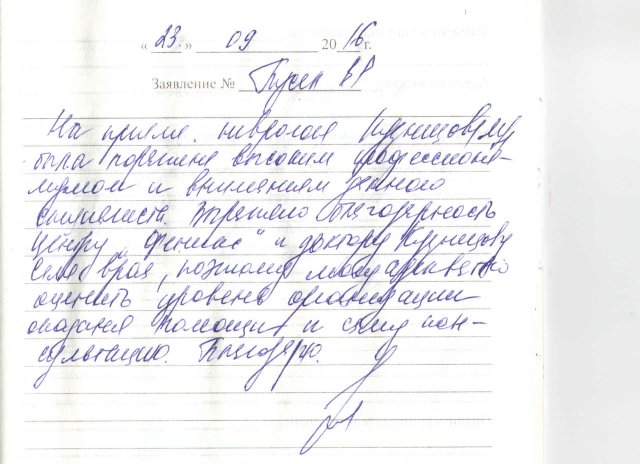 « 23 » 09 2016 г.
Заявление №
На приеме невролога Кузнецова
была поражена высоким профессиона-
лизмом и вниманием данного
специалиста. Выражаю благодарность
центру "Феникс" и доктору Кузнецову
Сама врач, поэтому могу адекватно
оценить уровень организации
оказания помощи и саму кон-
сультацию. Благодарю.